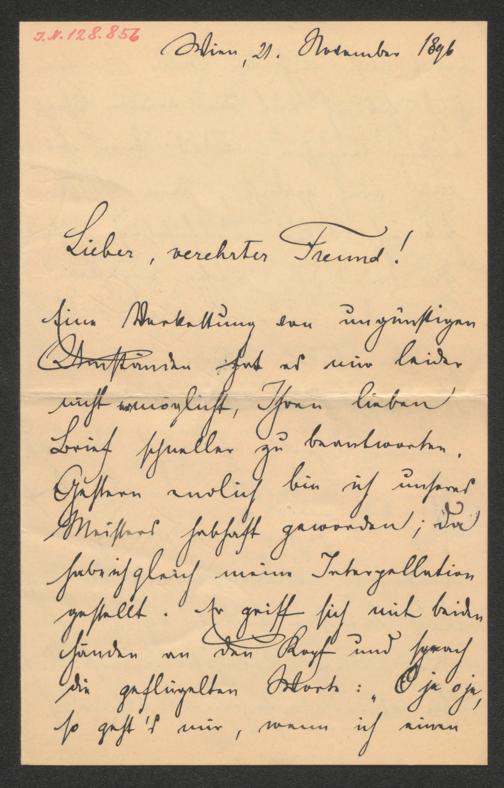 I.N.128.856
Wien, 21. November 1896
Lieber, verehrter Freund!
Eine Verkettung von ungünstigen
Umständen hat es mir leider
nicht ermöglicht, Ihren lieben
Brief schneller zu beantworten.
Gestern endlich bin ich unseres
Meisters habhaft geworden; da
habe ich gleich meine Interpellation
gestellt. Er griff sich mit beiden
Händen an den Kopf und sprach
die geflügelten Worte: „O je o je,
so geht's mir, wenn ich einen